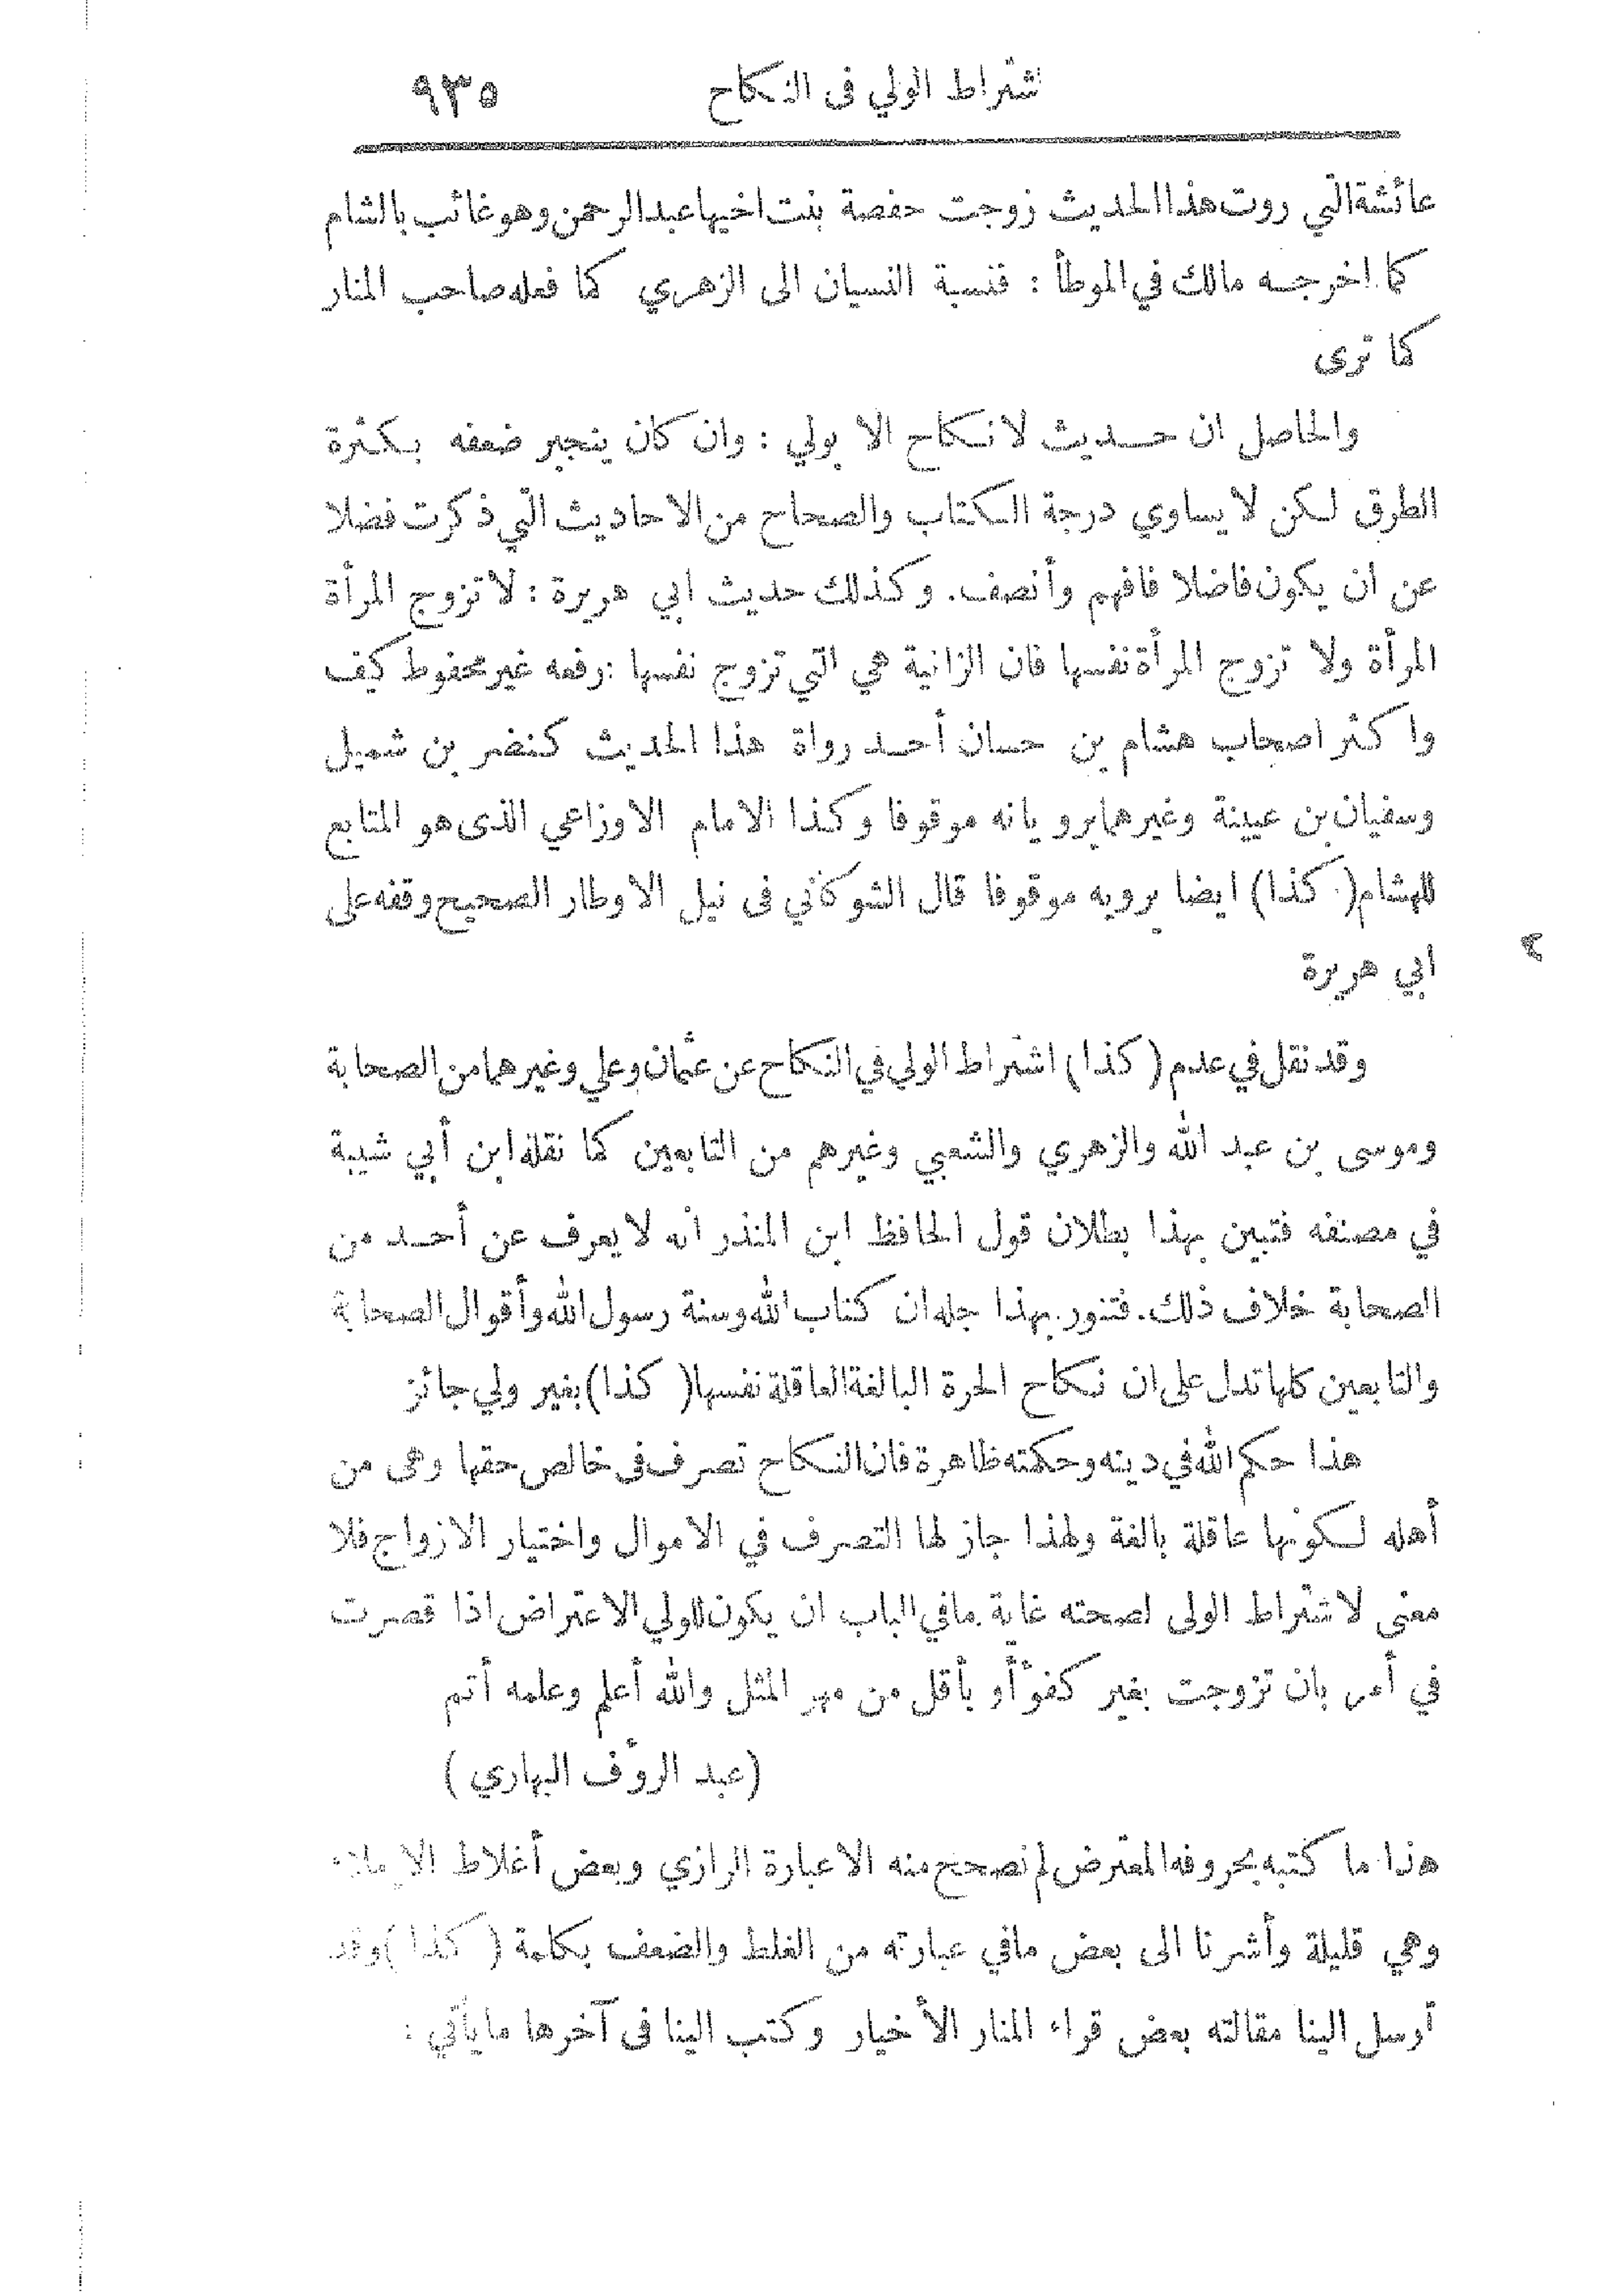 اشتراط الولي فى النكاح ٩٣٥
عائشة التي روت هذا الحديث زوجت حفصة بنت اخيها عبد الرحمن وهو غائب بالشام
كما اخرجه مالك في الموطأ : فنسبة النسيان الى الزهري كما فعله صاحب المنار
كما ترى
والحاصل ان حديث لا نكاح الا بولي : وان كان ينجبر ضعفه بكثرة
الطرق لكن لا يساوي درجة الكتاب والصحاح من الاحاديث التي ذكرت فضلا
عن ان يكون فاضلا فافهم وأنصف. وكذلك حديث ابي هريرة : لا تزوج المرأة
المرأة ولا تزوج المرأة نفسها فان الزانية هي التي تزوج نفسها : رفعه غير محفوظ كيف
واكثر اصحاب هشام بن حسان أحد رواة هذا الحديث كنضر بن شميل
وسفيان بن عيينة وغيرهما يرويانه موقوفا وكذا الامام الاوزاعي الذى هو المتابع
للهشام ( كذا ) ايضا يرويه موقوفا قال الشوكاني فى نيل الاوطار الصحيح وقفه على
ابي هريرة
وقد نقل في عدم ( كذا ) اشتراط الولي في النكاح عن عثمان وعلي وغيرهما من الصحابة
وموسى بن عبد الله والزهري والشعبي وغيرهم من التابعين كما نقله ابن أبي شيبة
في مصنفه فتبين بهذا بطلان قول الحافظ ابن المنذر انه لا يعرف عن أحد من
الصحابة خلاف ذلك. فتنور بهذا جله ان كتاب الله وسنة رسول الله وأقوال الصحابة
والتابعين كلها تدل على ان نكاح الحرة البالغة العاقلة نفسها ( كذا ) بغير ولي جائز
هذا حكم الله في دينه وحكمته ظاهرة فان النكاح تصرف فى خالص حقها وهى من
أهله لكونها عاقلة بالغة ولهذا جاز لها التصرف في الاموال واختيار الازواج فلا
معنى لاشتراط الولى لصحته غاية مافي الباب ان يكون للولي الاعتراض اذا قصرت
في أمر بان تزوجت بغير كفؤ أو بأقل من مهر المثل والله أعلم وعلمه أتم
( عبد الرؤف البهاري )
هذا ما كتبه بحروفه المعترض لم نصحح منه الا عبارة الرازي وبعض أغلاط الاملاء
وهي قليلة وأشرنا الى بعض مافي عبارته من الغلط والضعف بكلمة ( كذا ) وقد
أرسل الينا مقالته بعض قراء المنار الأخيار وكتب الينا فى آخرها ما يأتي :